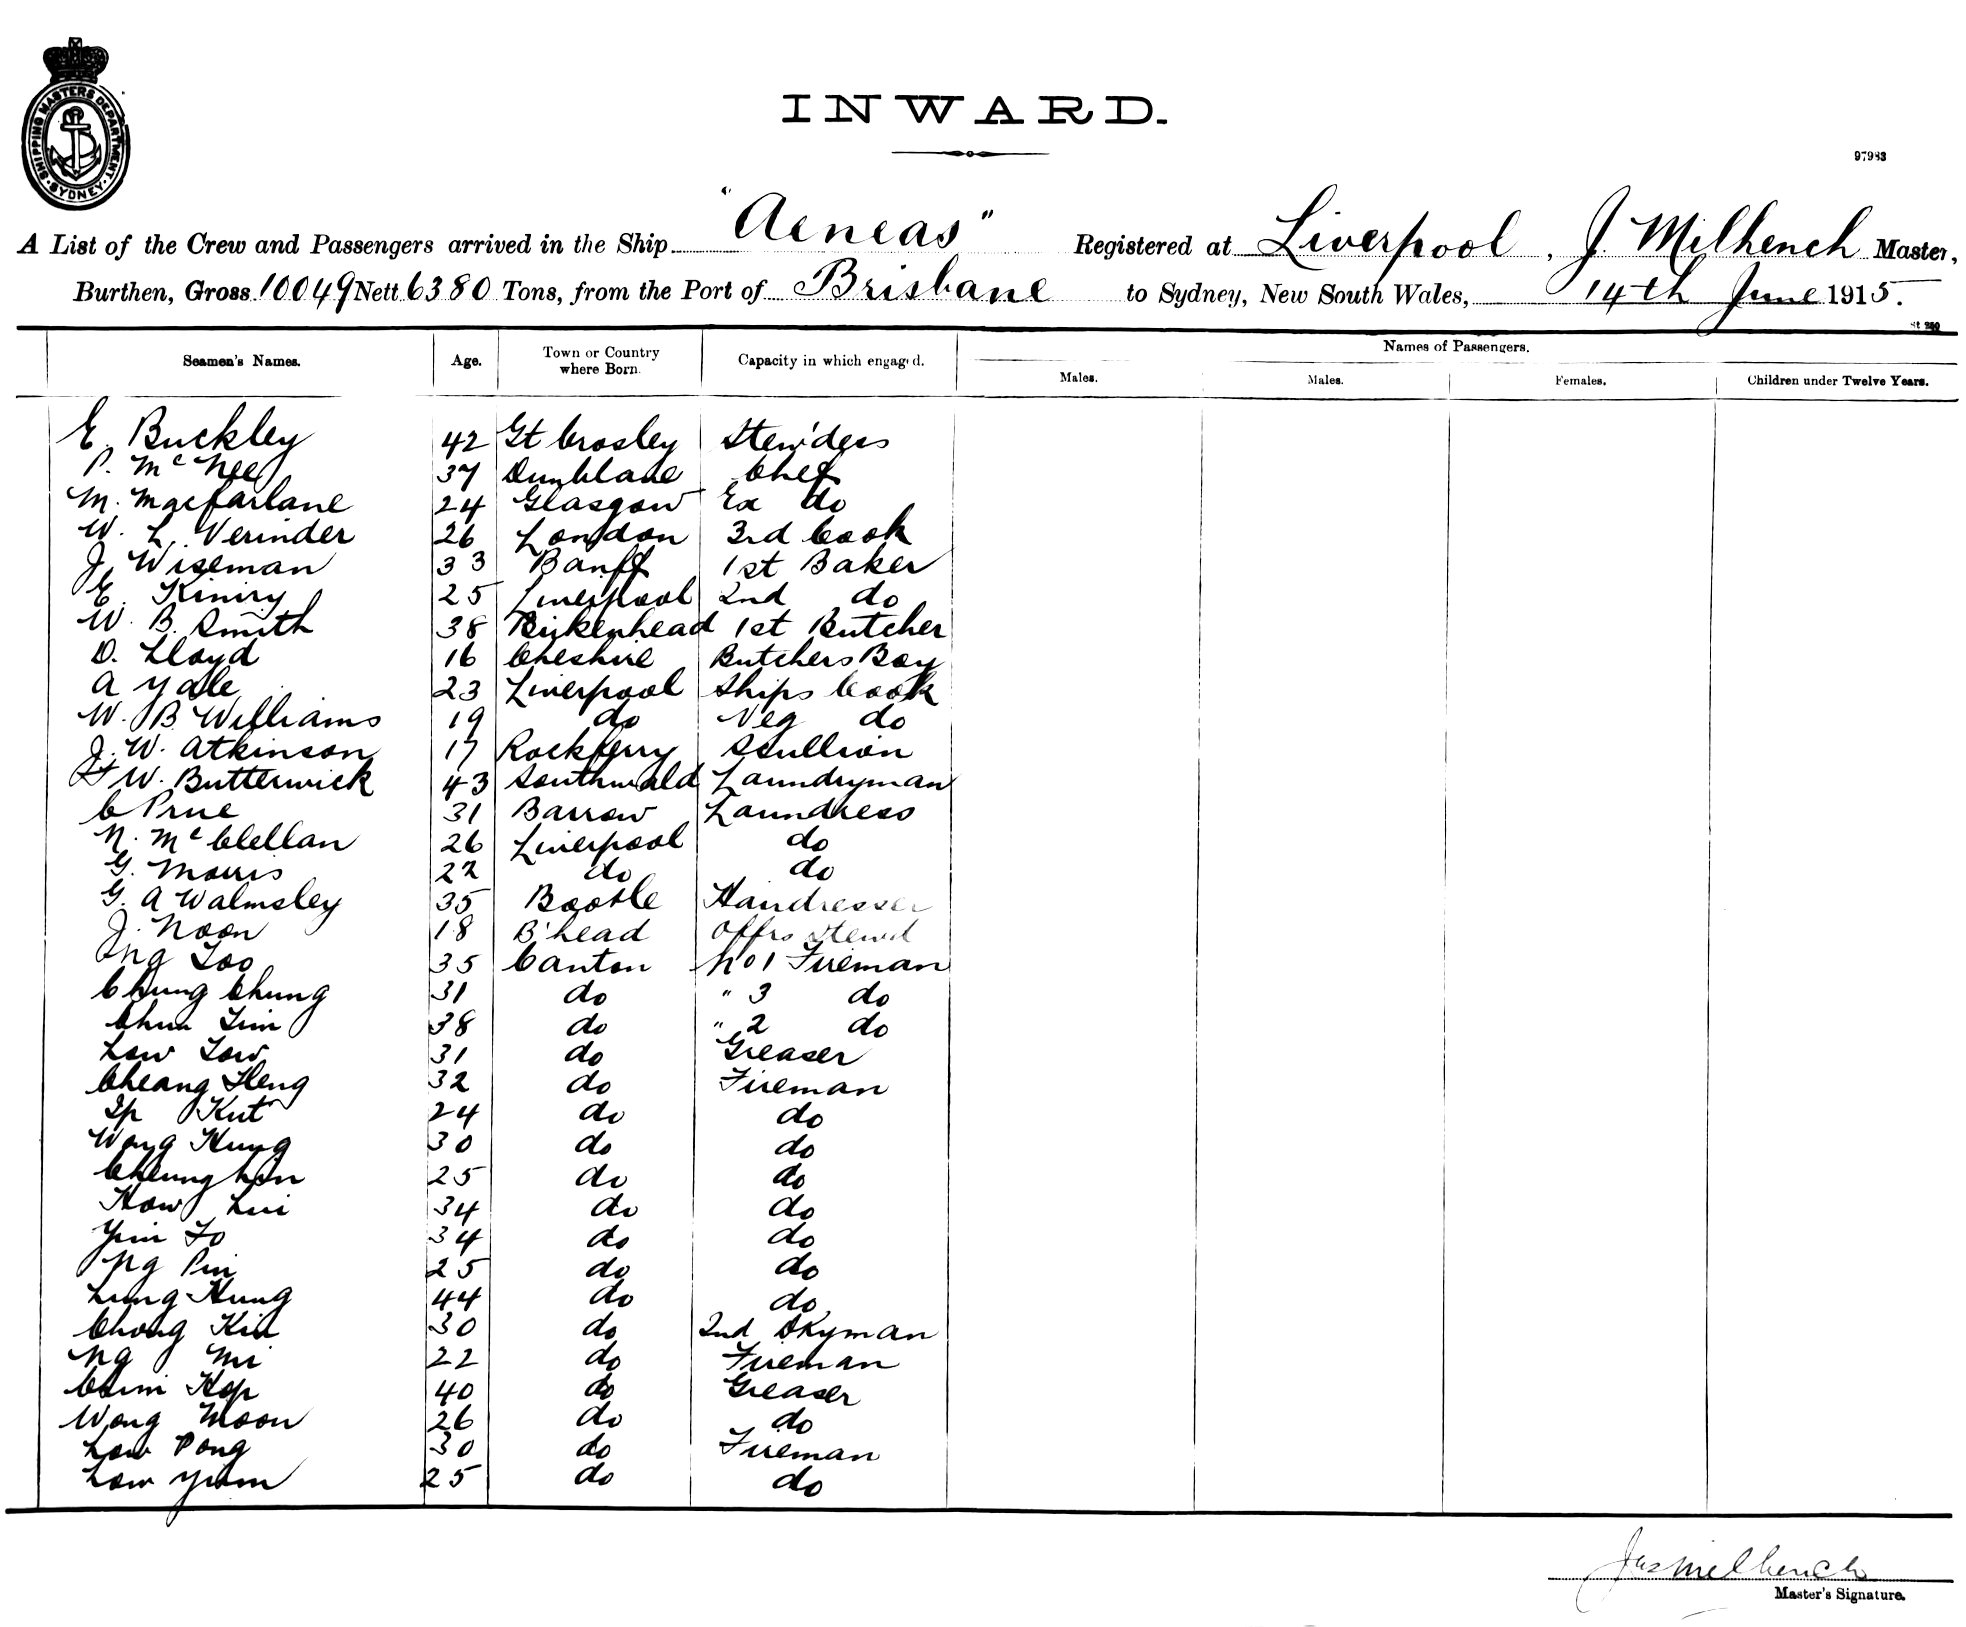 SHIPPING MASTERS DEPARTMENT. SYDNEY.
INWARD.
97983
A List of the Crew and Passengers arrived in the Ship "Aeneas" Registered at Liverpool, J. Milhench Master,
Burthen, Gross 10049 Nett 6380 Tons, from the Port of Brisbane to Sydney, New South Wales, 14th June 1915.
St 280
Seamen's Names. Age. Town or Country where Born. Capacity in which engaged. Names of Passengers.
Males. Males. Females. Children under Twelve Years.
E. Buckley 42 Gt Crosley Stew'dess
P. McNee 37 Dunblane Chef
M. Macfarlane 24 Glasgow Ex do
W. L. Verinder 26 London 3rd Cook
J. Wiseman 33 Banff 1st Baker
E. Kiniry 25 Liverpool 2nd do
W. B. Smith 38 Birkenhead 1st Butcher
D. Lloyd 16 Cheshire Butchers Boy
A Yale 23 Liverpool Ships Cook
W. B Williams 19 do Veg do
J. W. Atkinson 17 Rockferry Scullion
W. Butterwick 43 Southwald Laundryman
C Prue 31 Barrow Laundress
N. McClellan 26 Liverpool do
G. Morris 22 do do
G. A Walmsley 35 Bootle Hairdresser
J. Noon 18 B'head Offrs Stewd
Ng Too 35 Canton No 1 Fireman
Chung Chung 31 do " 3 do
Chun Tim 38 do " 2 do
Low Tow 31 do Greaser
Cheang Heng 32 do Fireman
Ip Kut 24 do do
Wong Hung 30 do do
Cheung Lin 25 do do
How Lui 34 do do
Yim To 34 do do
Ng Pin 25 do do
Lung Hung 44 do do
Chong Kin 30 do 2nd Dkyman
Ng Mi 22 do Fireman
Chim Hop 40 do Greaser
Wong Moon 26 do do
Low Pong 30 do Fireman
Low Yum 25 do do
Jas Milhench
Master's Signature.